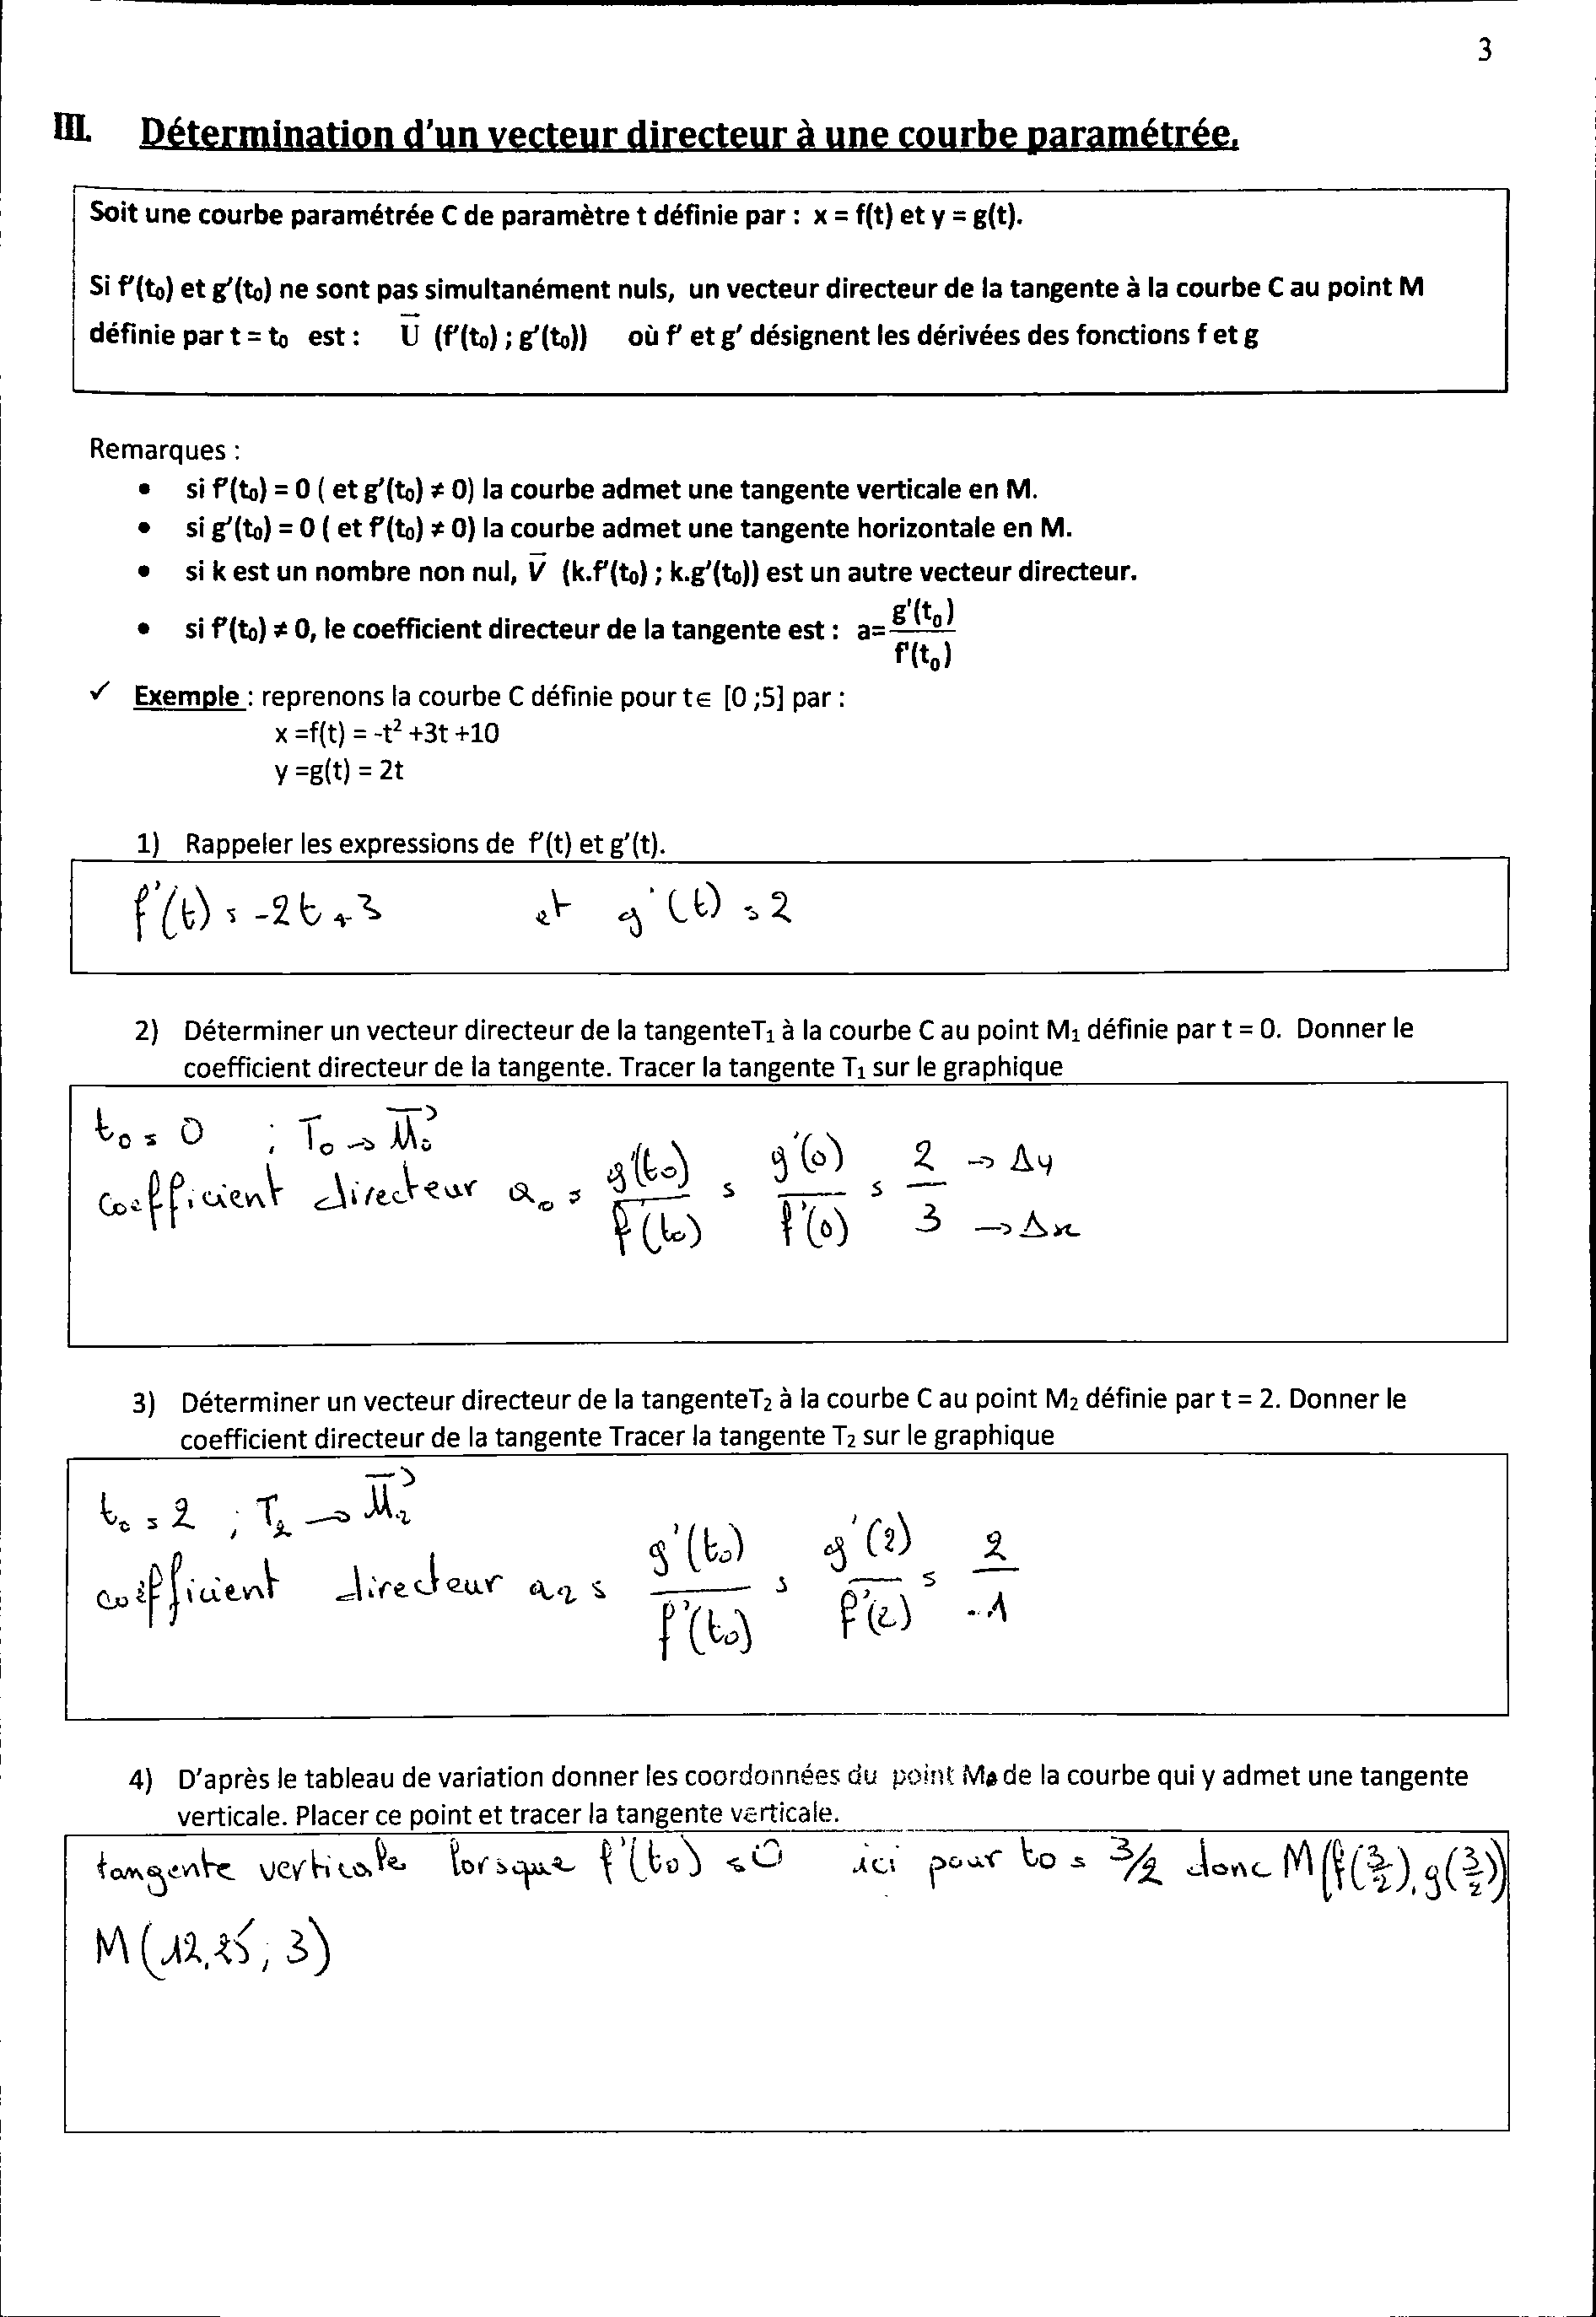 3
III. Détermination d'un vecteur directeur à une courbe paramétrée.
Soit une courbe paramétrée C de paramètre t définie par : x = f(t) et y = g(t).
Si f'(t₀) et g'(t₀) ne sont pas simultanément nuls, un vecteur directeur de la tangente à la courbe C au point M
définie par t = t₀ est : U⃗ (f'(t₀) ; g'(t₀)) où f' et g' désignent les dérivées des fonctions f et g
Remarques :
• si f'(t₀) = 0 ( et g'(t₀) ≠ 0) la courbe admet une tangente verticale en M.
• si g'(t₀) = 0 ( et f'(t₀) ≠ 0) la courbe admet une tangente horizontale en M.
• si k est un nombre non nul, V⃗ (k.f'(t₀) ; k.g'(t₀)) est un autre vecteur directeur.
• si f'(t₀) ≠ 0, le coefficient directeur de la tangente est : a= g'(t₀)/f'(t₀)
✓ Exemple : reprenons la courbe C définie pour t∈ [0 ;5] par :
x =f(t) = -t² +3t +10
y =g(t) = 2t
1) Rappeler les expressions de f'(t) et g'(t).
f'(t) = -2t + 3 et g'(t) = 2
2) Déterminer un vecteur directeur de la tangenteT₁ à la courbe C au point M₁ définie par t = 0. Donner le
coefficient directeur de la tangente. Tracer la tangente T₁ sur le graphique
t₀ = 0 ; T₀ → U⃗₀
coefficient directeur a₀ = g'(t₀)/f'(t₀) = g'(0)/f'(0) = 2/3 → Δy → Δx
3) Déterminer un vecteur directeur de la tangenteT₂ à la courbe C au point M₂ définie par t = 2. Donner le
coefficient directeur de la tangente Tracer la tangente T₂ sur le graphique
t₀ = 2 ; T₂ → U⃗₂
coefficient directeur a₂ = g'(t₀)/f'(t₀) = g'(2)/f'(2) = 2/-1
4) D'après le tableau de variation donner les coordonnées du point M de la courbe qui y admet une tangente
verticale. Placer ce point et tracer la tangente verticale.
tangente verticale lorsque f'(t₀) = 0 ici pour t₀ = 3/2 donc M(f(3/2), g(3/2))
M(12,25 ; 3)